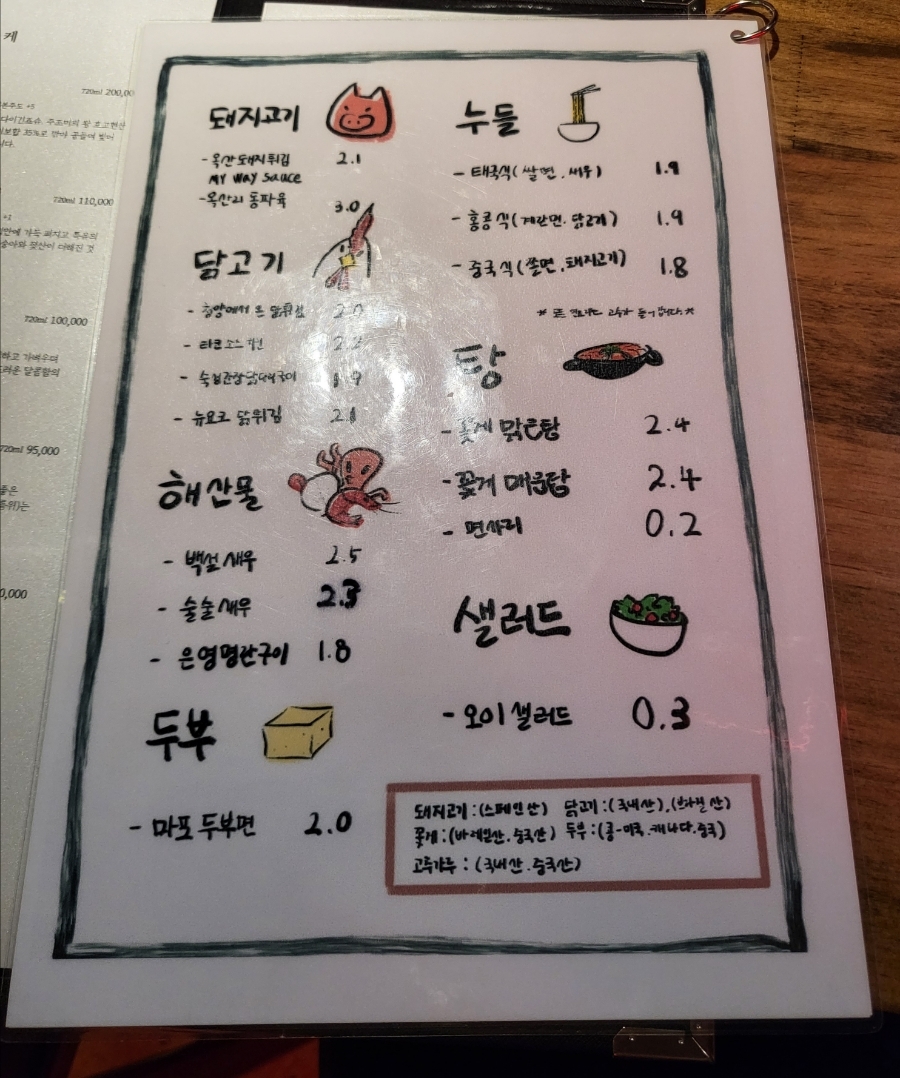 케
720ml 200,00
720ml 110,000
720ml 100,000
720ml 95,000
0,000
돼지고기
- 옥산돼지튀김 2.1
MY WAY Sauce
- 옥산리 동파육 3.0
닭고기
- 청양에서 온 닭튀김 2.0
- 타코소스치킨 2.2
- 1.9
- 뉴욕 닭튀김 2.1
해산물
- 백설새우 2.5
- 술술새우 2.3
- 은영명란구이 1.8
두부
- 마포두부면 2.0
누들
- 태국식(쌀면.새우) 1.9
- 홍콩식(계란면.닭고기) 1.9
- 중국식(쫄면.돼지고기) 1.8
탕
- 꽃게 맑은탕 2.4
- 꽃게 매운탕 2.4
- 면사리 0.2
샐러드
- 오이샐러드 0.3
돼지고기:(스페인산) 닭고기:(국내산),(브라질산)
꽃게:(바레인산.중국산) 두부:(콩-미국.캐나다.중국)
고춧가루:(국내산.중국산)